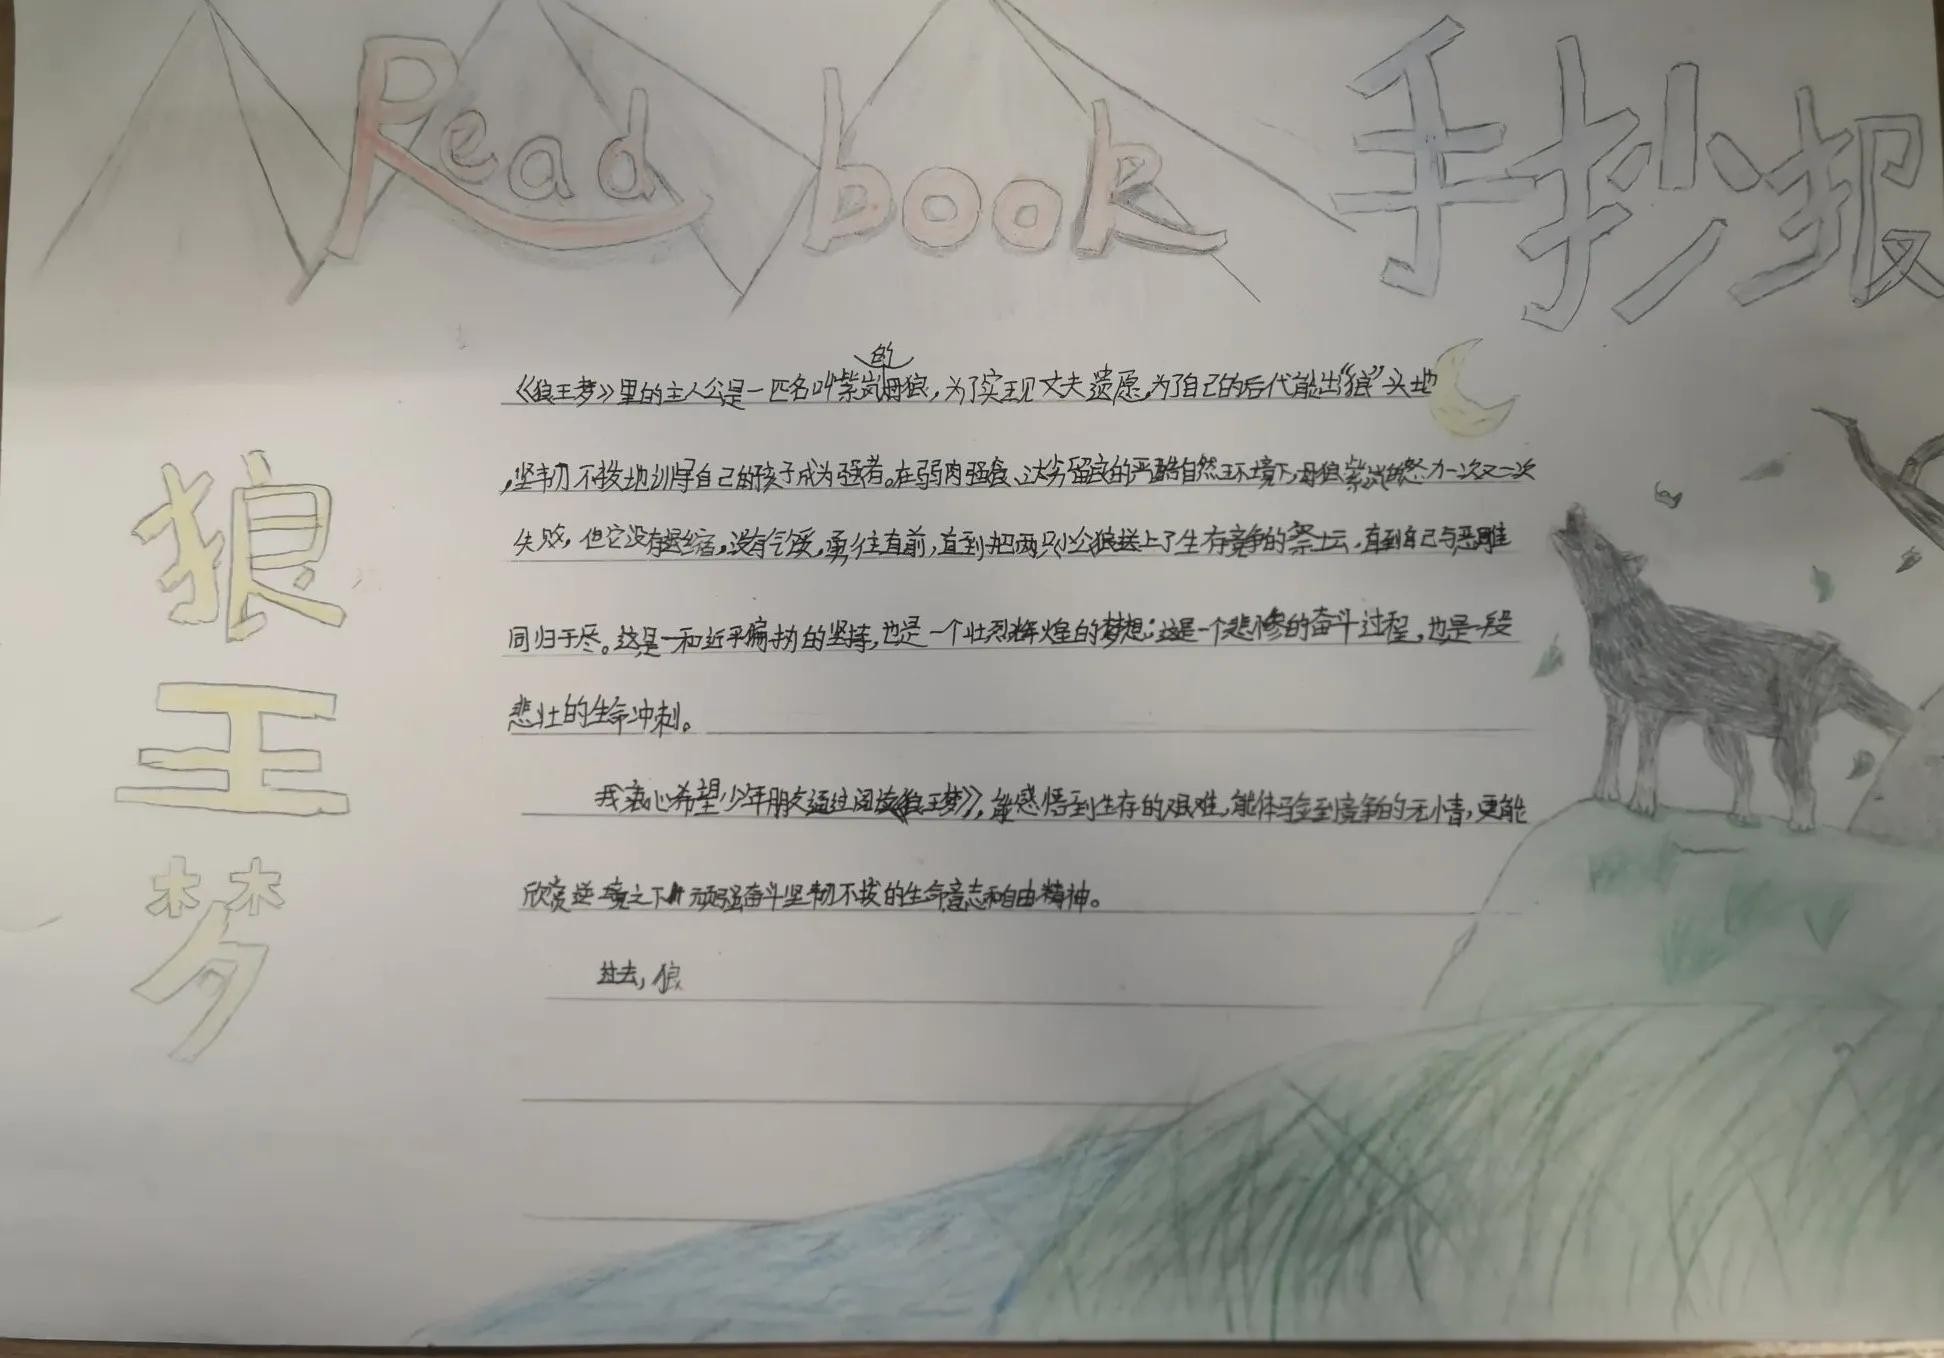 Read book 手抄报
狼王梦
《狼王梦》里的主人公是一匹名叫紫岚的母狼，为了实现丈夫遗愿，为了自己的后代能出“狼”头地
，坚韧不拔地训导自己的孩子成为强者。在弱肉强食、汰劣留良的严酷自然环境下，母狼紫岚的努力一次又一次
失败，但它没有退缩，没有气馁，勇往直前，直到把两只小公狼送上了生存竞争的祭坛，直到自己与恶雕
同归于尽。这是一种近乎偏执的坚持，也是一个壮烈辉煌的梦想；这是一个悲惨的奋斗过程，也是一段
悲壮的生命冲刺。
我衷心希望少年朋友通过阅读《狼王梦》，能感悟到生存的艰难，能体验到竞争的无情，更能
欣赏逆境之下顽强奋斗坚韧不拔的生命意志和自由精神。
过去，狼